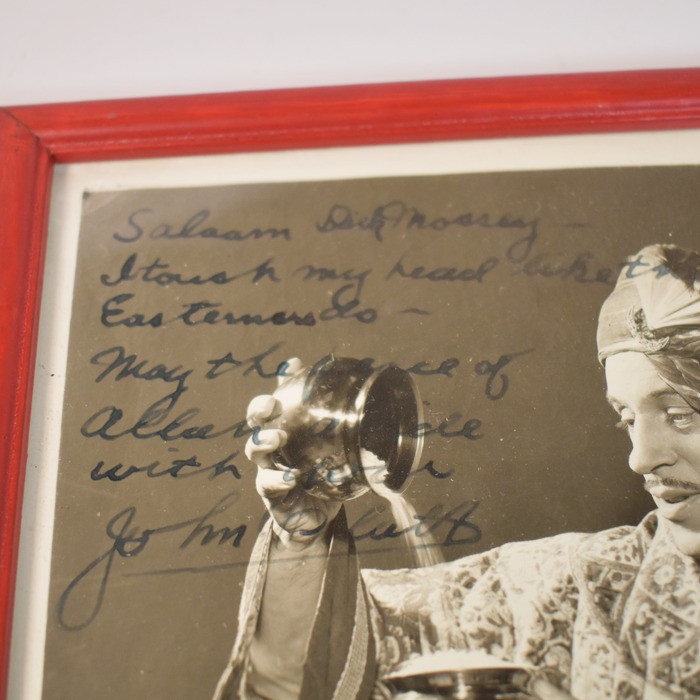 Salaam Dick Mossey —
I touch my head like the
Easterners do —
May the peace of
Allah abide
with
John